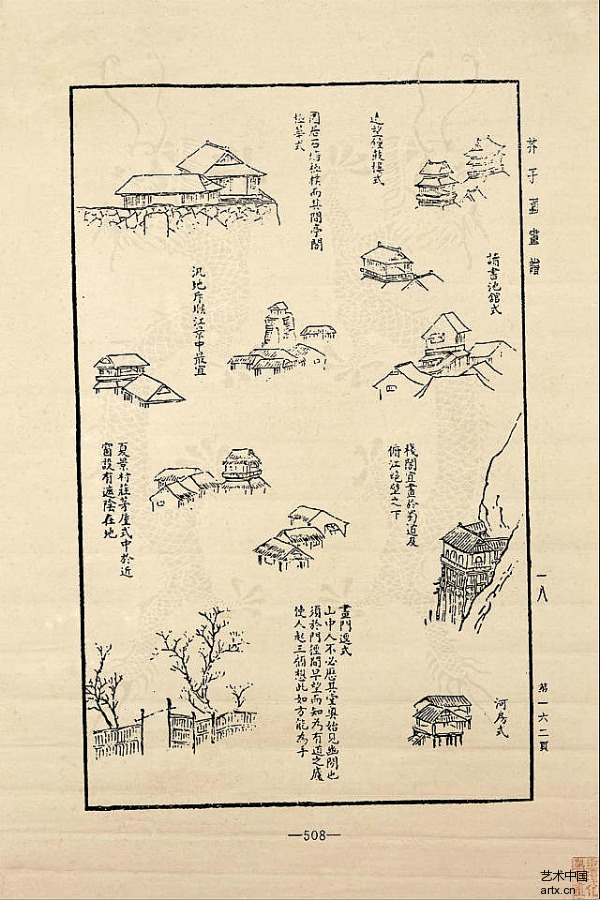 芥子園畫譜
一八
第一六二頁
遠望鐘鼓樓式
園居石墻極樸而其間亭閣
極華式
讀書池館式
汎地臨江景中最宜
棧閣宜畫於蜀道及
俯江絕壁之下
夏景村莊茅屋式中於近
窗設有遮陰在地
河房式
畫門逕式
山中人不必歷其堂奧始見幽閒也
須於門徑間早望而知為有道之廬
使人起三顧想此如方能為手
—508—
艺术中国
artx.cn